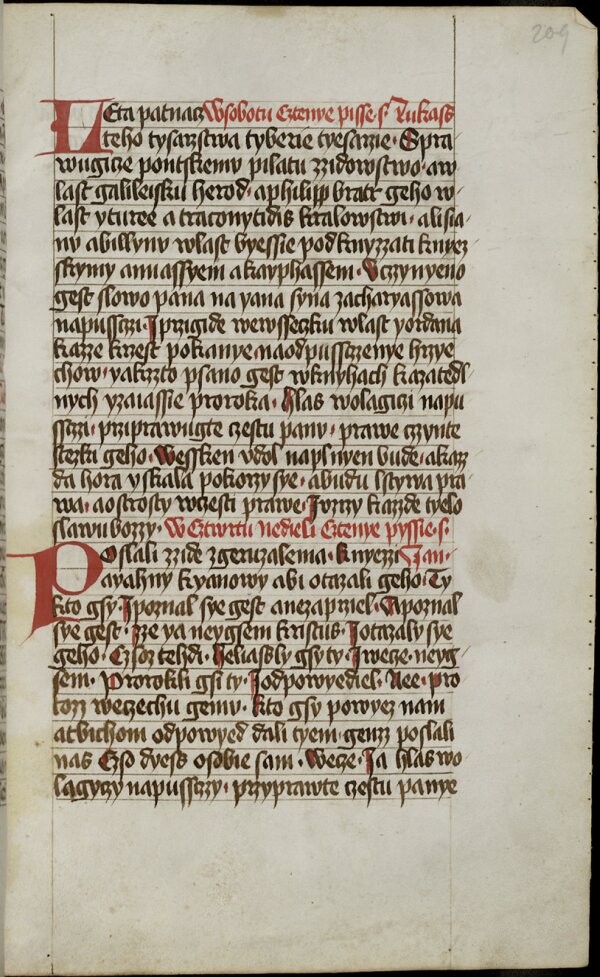 209
LEta patnacz Wsobotu Cztenye pisse·s· Lukass
teho tysarzstwa tyberie tyesarzie· Spra
wugicze pontskemu pilatu zzidowstwo· aw
last galileisku herod· aphilipp bratr geho w
last yturee a traconytidis kralowstwi· alisia
ny abillyny wlast byessie podknyzzati knyez
skymy annassyem a kayphassem· Vczynyeno
gest slowo pana na yana syna zacharyassowa
napussczi· I przigide wewsseczku wlast yordana
kazze krzest pokanye· naodpussczenye hrzye
chow· yakzzto psano gest wknyhach kazatedl
nych yzaiassie proroka· hlas wolagiczi napu
ssczi· prziprawugte czestu panu· prawe czynte
stezki geho· Wessken vdol naplnyen bude· akaz
da hora y skala pokorzy sye· abudu lstywa pra
wa· aostrosty wczesti prawe· Iuzrzy kazzde tyelo
slawu bozzy· WCztwrtu nedieli Cztenye pyssie·s·
POslali zzide zgeruzalema· knyezzi Jan·
ayahny kyanowy abi otazali geho· Ty
kto gsy· Ipoznal sye gest anezaprziel· Apoznal
sye gest· zze ya neygsem kristus· Iotazaly sye
geho· Czsoz tehdi· heliassly gsy ty· I wecze· neyg
sem· Prorokli gsi ty· Iodpowyediel· Nee· pro
tozz weczechu gemu· kto gsy powyez nam
atbichom odpowyed dali tyem· genzz poslali
nas Czso dyess osobie sam· Wecze· Ia hlas wo
lagyczy napussczzy· przyprawte czestu panye